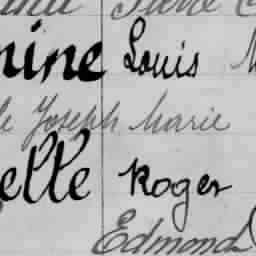 nine Louis
Joseph Marie
elle Roger
Edmond